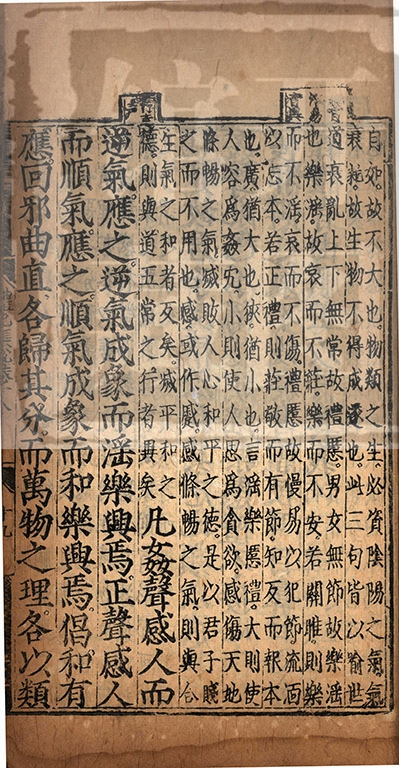 自如故不大也物類之生必資陰陽之氣氣
衰耗故生物不得成遂也此三句皆以喻世
道衰亂上下無常故禮慝男女無節故樂淫
也樂淫故哀而不莊樂而不安若關雎則樂
而不淫哀而不傷禮慝故慢易以犯節流湎
以忘本若正禮則莊敬而有節知反而報本
也廣猶大也狹猶小也言淫樂慝禮大則使
人容爲姦宄小則使人思爲貪欲感傷天地
條暢之氣滅敗人心和平之德是以君子賤
之而不用也感或作慼慼條暢之氣則與合
生氣之和者反矣滅平和之
德則與道五常之行者異矣
凡姦聲感人而
逆氣應之逆氣成象而淫樂興焉正聲感人
而順氣應之順氣成象而和樂興焉倡和有
應回邪曲直各歸其分而萬物之理各以類